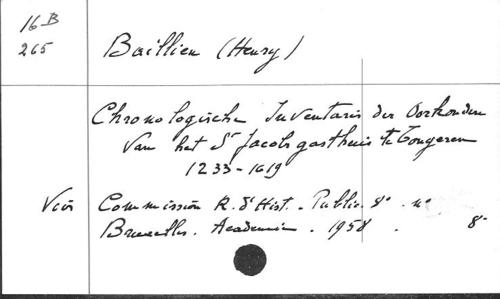 16 B
265
Baillien (Henry)
Chronologische Inventaris der Oorkonden
van het St Jacobsgasthuis te Tongeren
1233-1619
Voir Commission R. d'Hist. Public. 8° n°
Bruxelles. Academie. 1958. 8°